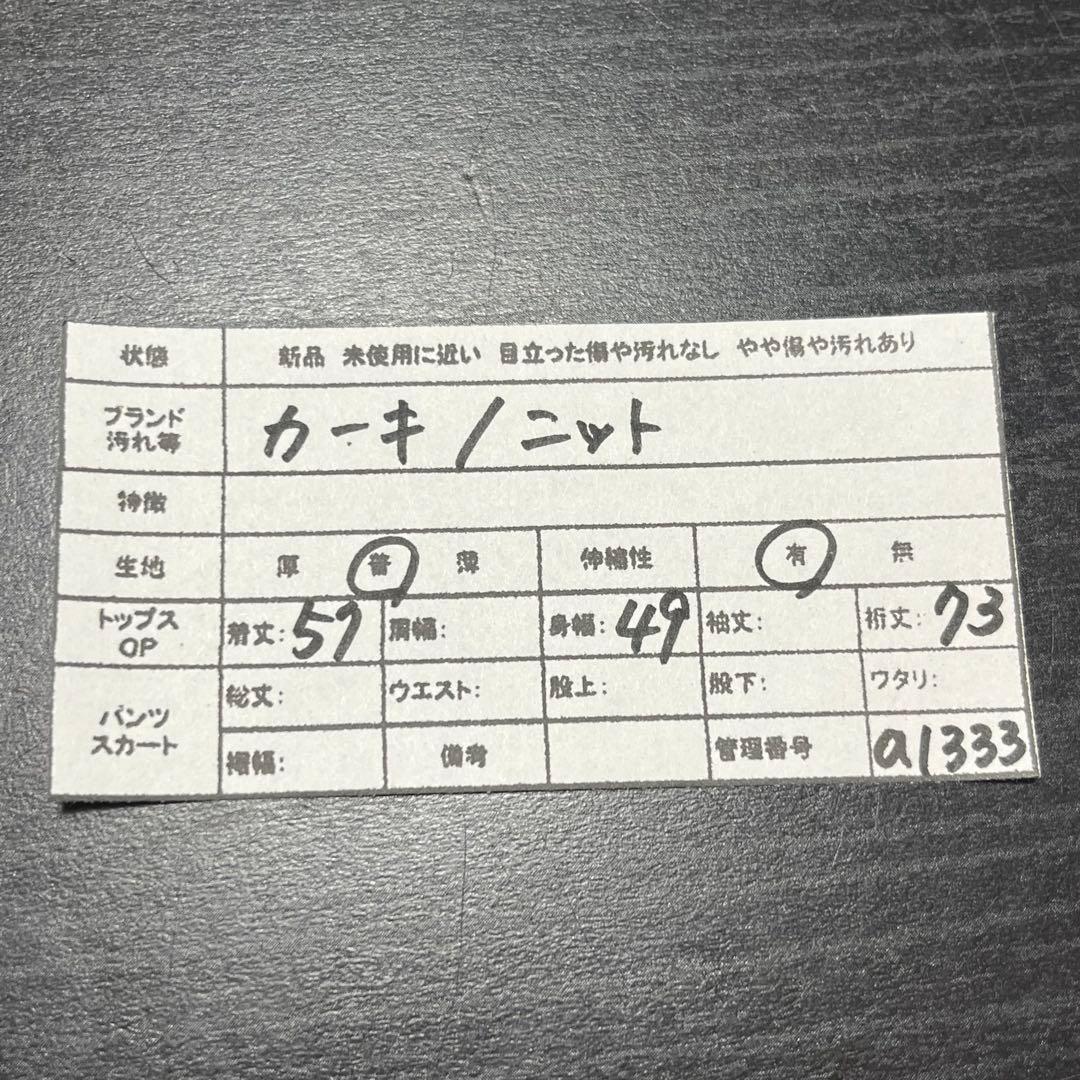 状態 新品 未使用に近い 目立った傷や汚れなし やや傷や汚れあり
ブランド
汚れ等
カーキ/ニット
特徴
生地 厚 普 薄 伸縮性 有 無
トップス
OP
着丈:57 肩幅: 身幅:49 袖丈: 裄丈:73
パンツ
スカート
総丈: ウエスト: 股上: 股下: ワタリ:
裾幅: 備考 管理番号 a1333